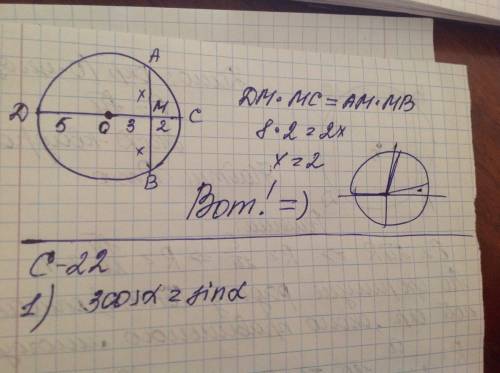 A
D
5
O
3
M
2
C
x
x
B
DM · MC = AM · MB
8 · 2 = 2x
x = 2
Вот! =)
С-22
1) 3cosα = sinα